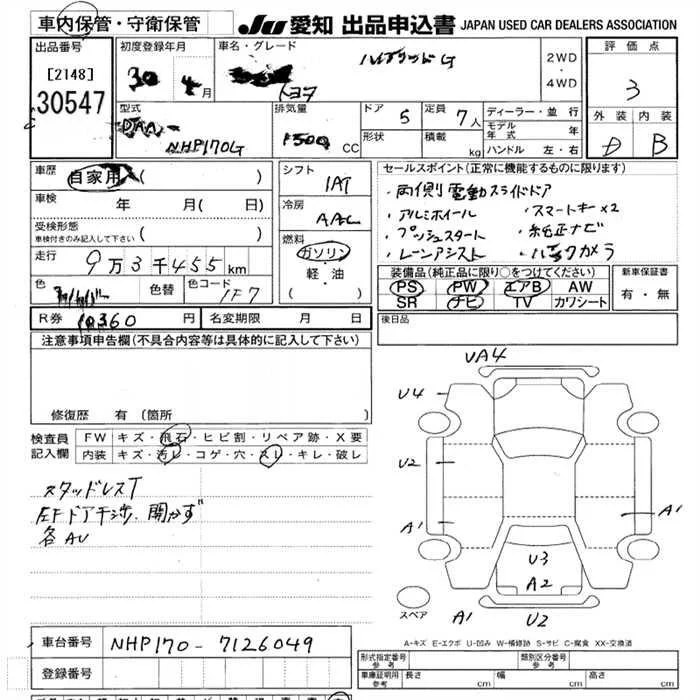 車内保管・守衛保管
JU 愛知 出品申込書 JAPAN USED CAR DEALERS ASSOCIATION
出品番号
[2148]
30547
初度登録年月
30 4月
車名・グレード
ハイブリッドG
トヨタ
2WD
・
4WD
評価点
3
外装 内装
D B
型式
DAA-
NHP170G
排気量
1500 CC
ドア 5
定員 7人
形状
積載 kg
ディーラー・並行
モデル年式 年
ハンドル 左・右
車歴 自家用 ( )
車検 年 月( 日)
受検形態
車検付きのみ記入して下さい ( )
走行 9万3千455km
色 色替 色コード 1F7
R券 10360円 名変期限 月 日
シフト
IAT
冷房
AAC
燃料
ガソリン
・
軽・油
( )
セールスポイント(正常に機能するものに限ります)
・両側電動スライドドア
・アルミホイール ・スマートキー×2
・プッシュスタート ・純正ナビ
・レーンアシスト ・バックカメラ
装備品(純正品に限り○をつけてください)
PS PW エアB AW
SR ナビ TV カワシート
新車保証書
有・無
後日品
注意事項申告欄(不具合内容等は具体的に記入して下さい)
修復歴 有(箇所 )
検査員記入欄
FW キズ・飛石・ヒビ割・リペア跡・X要
内装 キズ・汚レ・コゲ・穴・スレ・キレ・破レ
スタッドレスT
左Fドア干渉、開かず
各AU
UA4
U4
U2
A1
A1
U3
A2
A1
U2
スペア
A-キズ E-エクボ U-凹み W-補修跡 S-サビ C-腐食 XX-交換済
車台番号 NHP170-7126049
登録番号
形式指定番号 参考
類別区分番号 参考
車庫証明用 参考 長さ cm 幅 cm 高さ cm